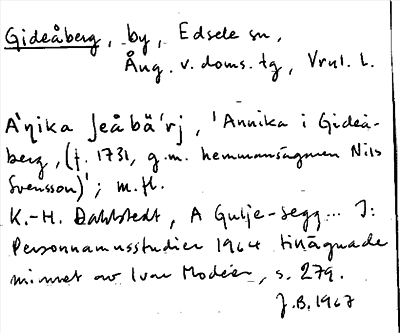 Gideåberg, by, Edsele sn,
Ång. v. doms. tg, Vrnl. l.
A`ŋika Jeåbä´rj, 'Annika i Gideå-
berg, (f. 1731, g.m. hemmansägaren Nils
Svensson)'; m.fl.
K.-H. Dahlstedt, A Gulje-Segg... I:
Personnamnsstudier 1964 tillägnade
minnet av Ivar Modéer, s. 279.
J.B. 1967